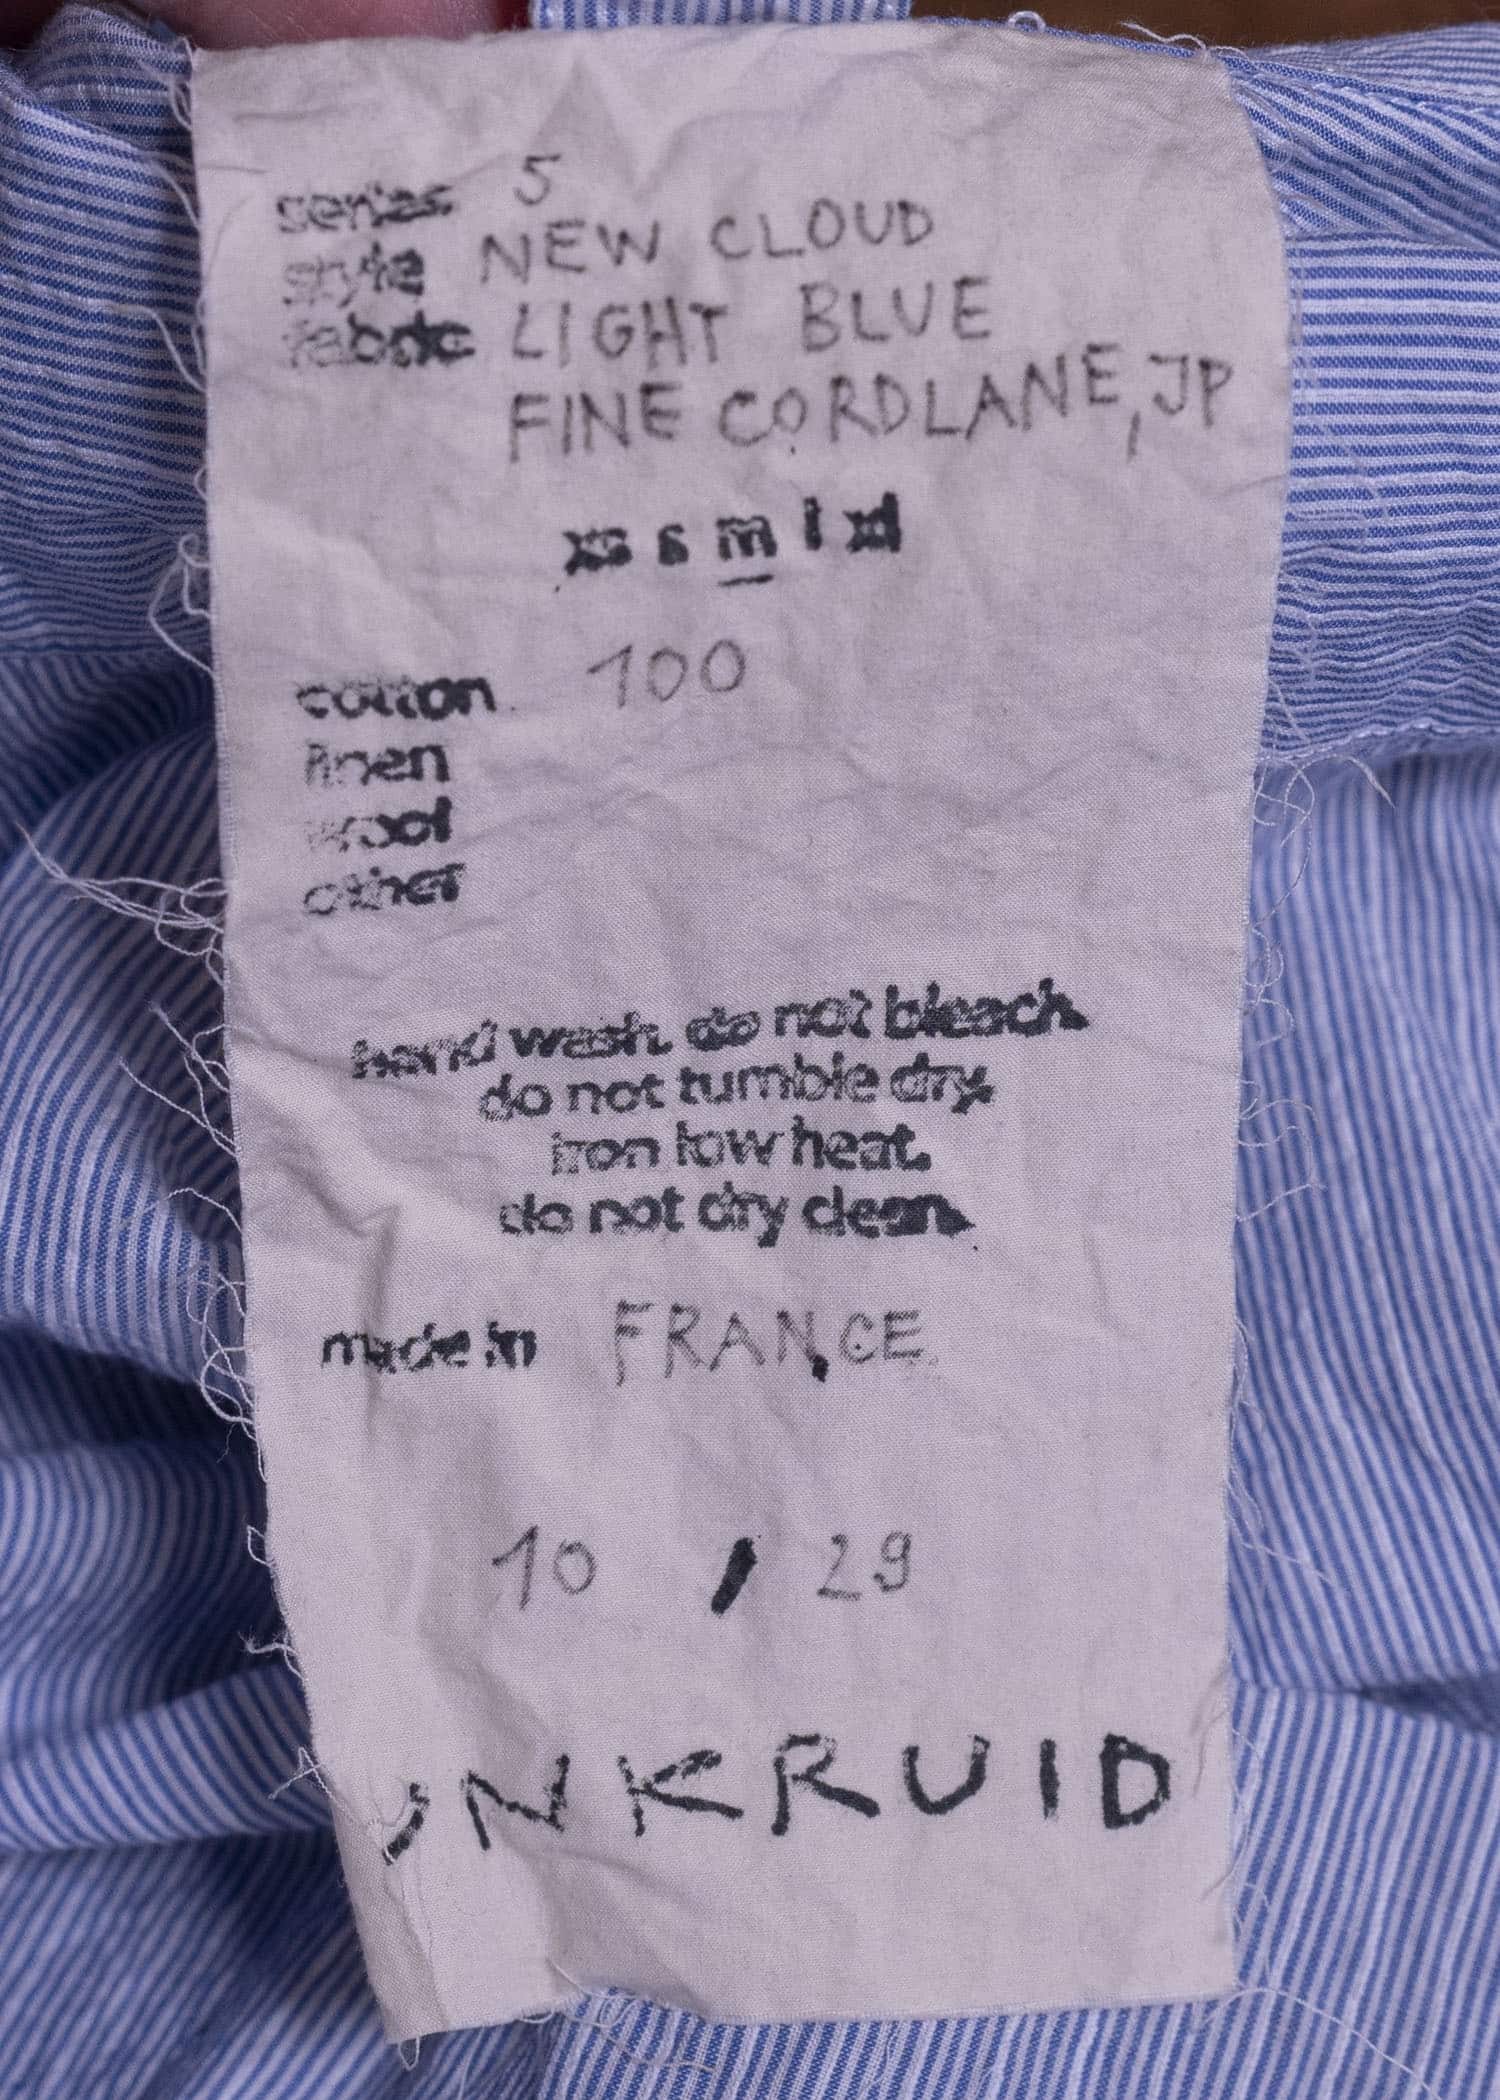 series 5
style NEW CLOUD
fabric LIGHT BLUE
FINE CORDLANE, JP
xs s m l xl
cotton 100
linen
wool
other
hand wash. do not bleach.
do not tumble dry.
iron low heat.
do not dry clean.
made in FRANCE
10 / 29
UNKRUID